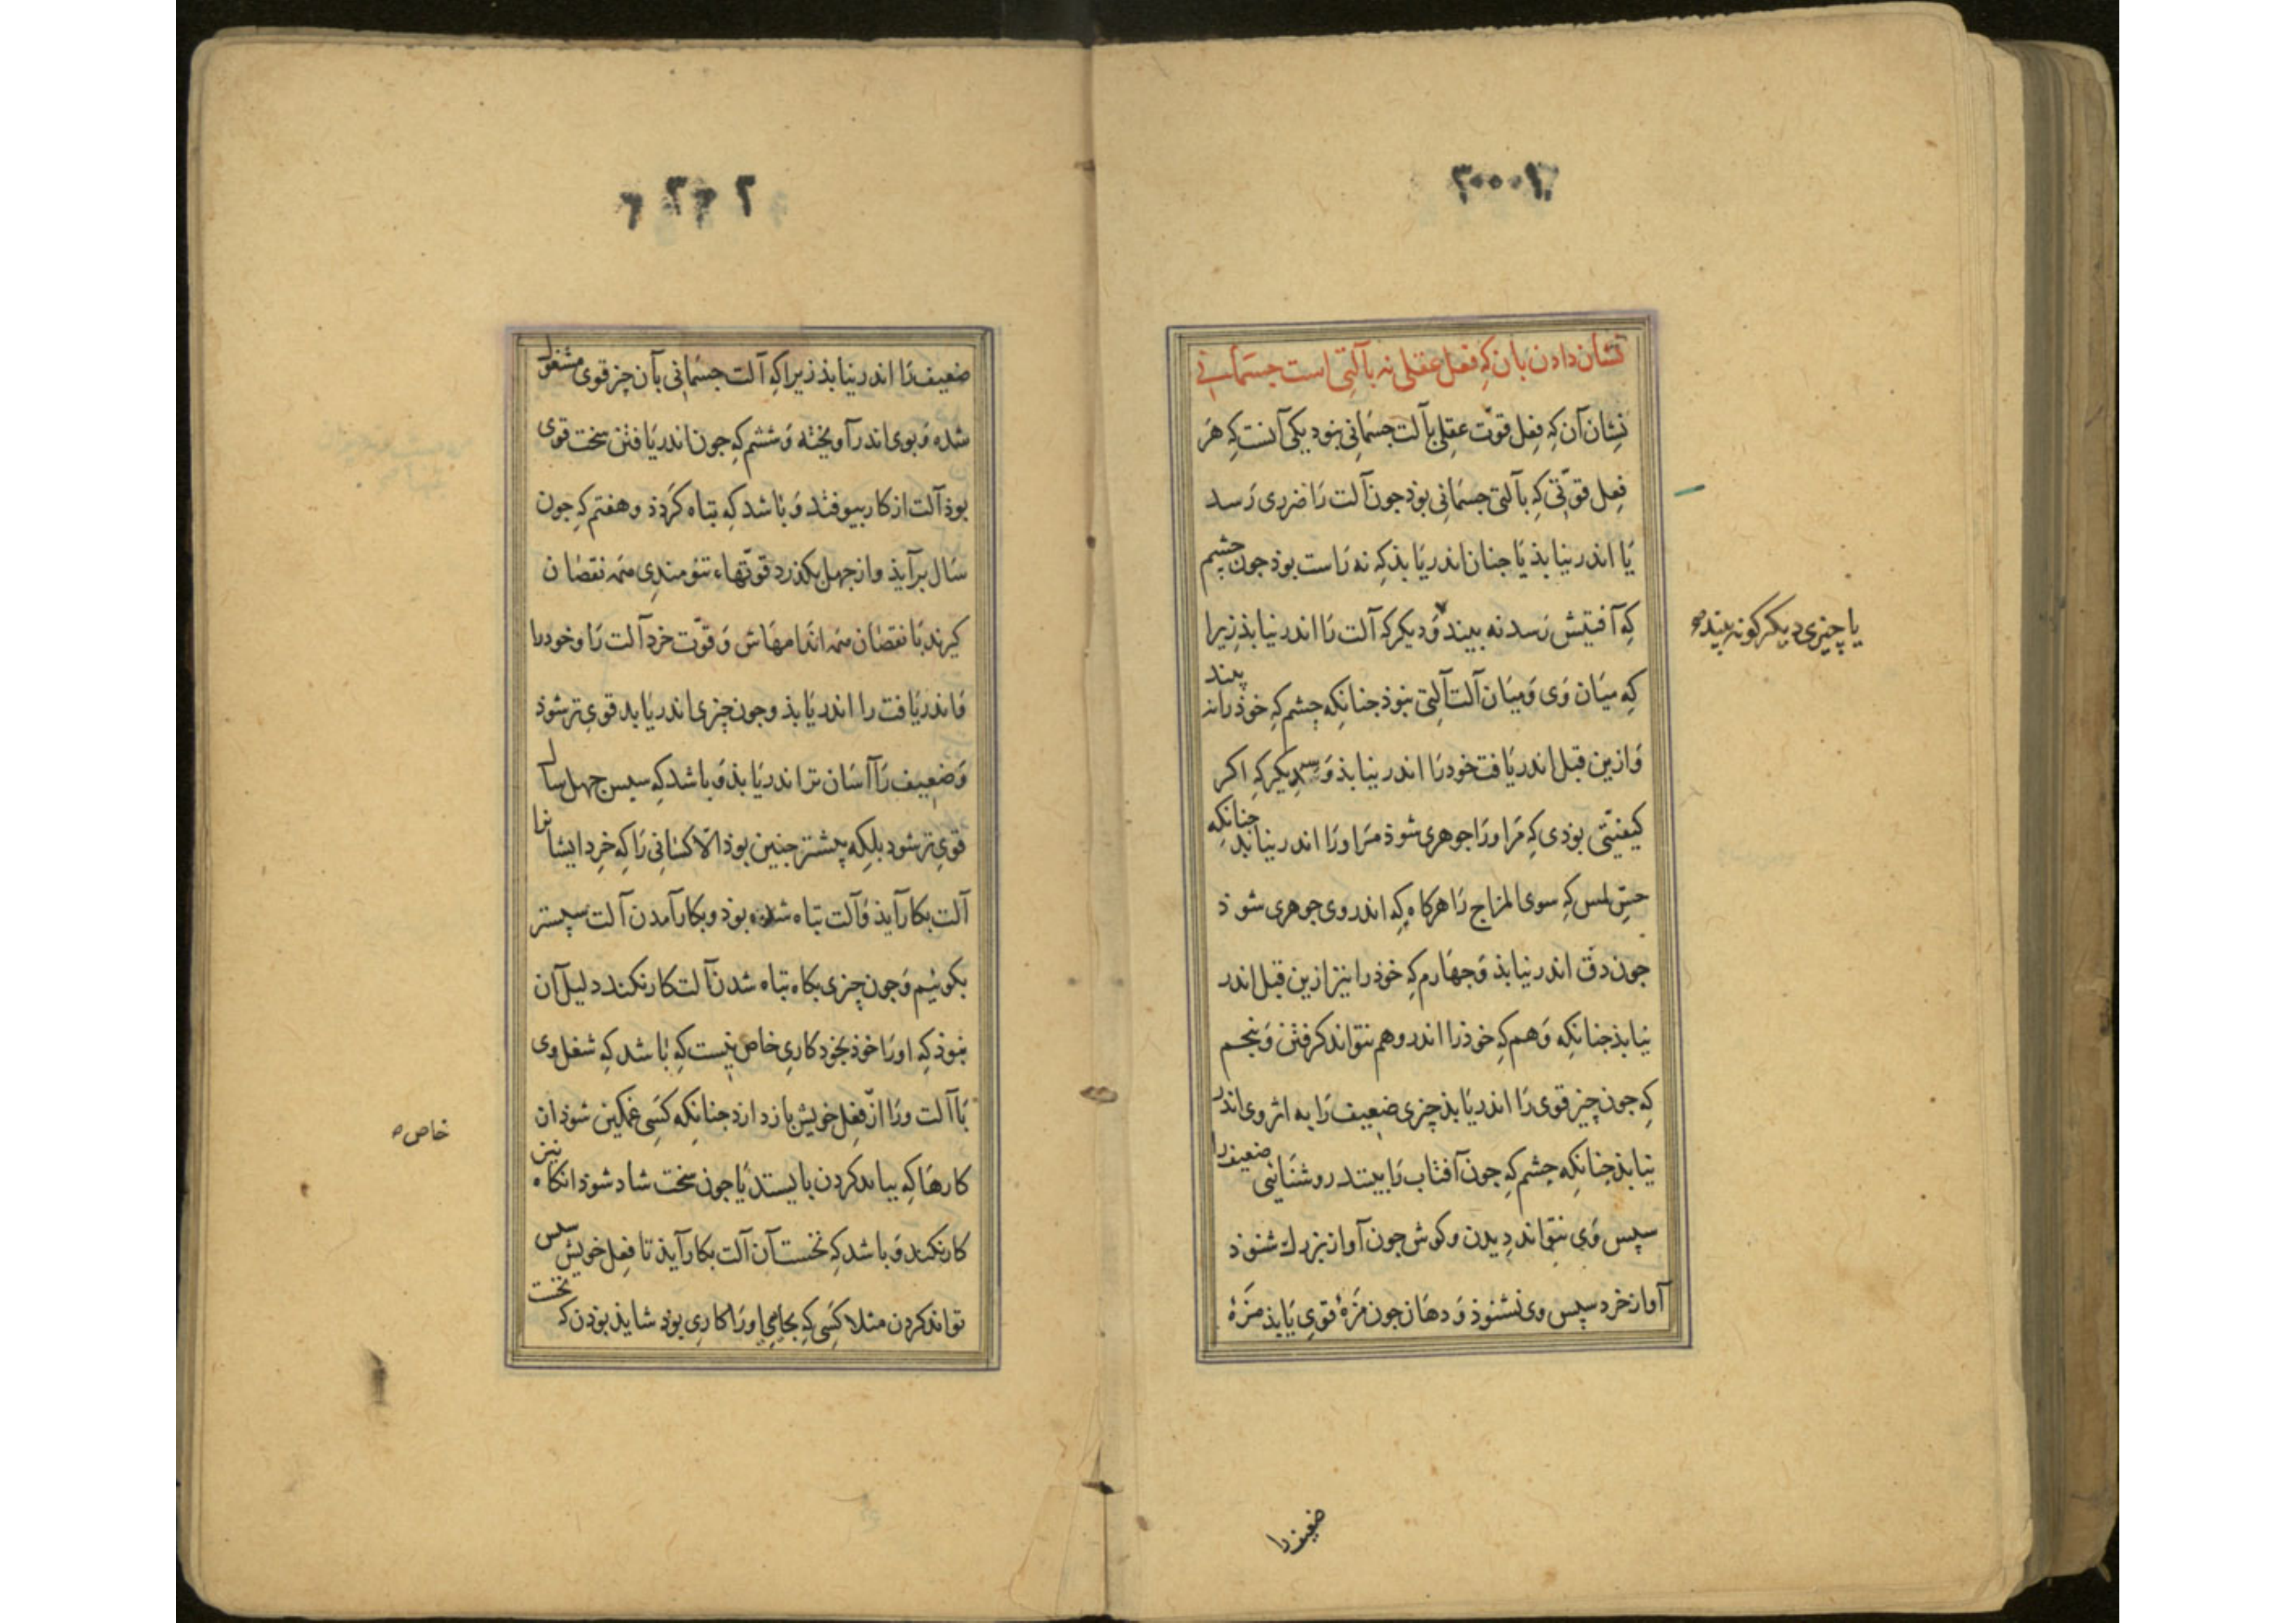 نشان دادن بآن که فعل عقلی نه بآلتی است جسمانی
نشان آن که فعل قوّت عقلی بآلت جسمانی نبود یکی آنست که هر
فعل قوّتی که بآلتی جسمانی بود جون آلت را ضرری رسد
یا اندر نیابذ یا جنان اندر یابذ که نه راست بوذ جون چشم
که آفتیش رسد نه بیند و دیکر که آلت را اندر نیابذ زیرا
یا چیزی دیکر کونه بیند
که میان وی و میان آلت آلتی نبوذ جنانکه چشم که خوذ را نه بیند
و از این قبل اندر یافت خود را اندر نیابذ و سدیکر که اکر
کیفیّتی بوذی که مر اورا جوهری شوذ مر اورا اندر نیابد جنانکه
حسّ لمس که سوی المزاج را هرکاه که اندر وی جوهری شوذ
جون دق اندر نیابذ و جهارم که خوذ را نیز ازین قبل اندر
نیابذ جنانکه وهم که خوذ را اندر وهم نتواند کرفتن و پنجم
که جون چیز قوی را اندر یابذ چیزی ضعیف را به اثر وی اندر
نیابذ جنانکه چشم که جون آفتاب را بیند روشنایی ضعیف را
سپس وی نتواند دیدن و کوش جون آواز بزرك شنوذ
آواز خرد سپس وی نشنوذ و دهان جون مزهٔ قوی یابذ مزهٔ
ضعیف را
ضعیف را اندر نیابذ زیرا که آلت جسمانی بآن چیز قوی مشغول
شده و بوی اندر آویخته و ششم که جون اندر یافتن سخت قوی
بوذ آلت از کار بیوفتد و باشد که تباه کرذذ و هفتم که جون
سال برآیذ و از جهل بکذرد قوّتهاء تنومندی همه نقصان
کیرند با نقصان همه اندامهاش و قوّت خرد آلت را و خود را
و اندر یافت را اندر یابذ و جون چیزی اندر یابد قوی تر شوذ
و ضعیف را آسان تر اندر یابذ و باشد که سپس جهل سال
قوی تر شود بلکه پیشتر جنین بوذ الّا کسانی را که خرد ایشان را
آلت بکار آیذ و آلت تباه شده بود و بکار آمدن آلت سپستر
بکوئیم و جون چیزی بکاه تباه شدن آلت کار نکند دلیل آن
نبوذ که اورا خوذ بخود کاری خاص نیست که باشد که شغل وی
با آلت ورا از فعل خویش باز دارد جنانکه کسی غمکین شود از آن
خاص
کارها که بباید کردن بایستد یا جون سخت شاد شوذ آنکاه نیز
کار نکند و باشد که نخست آن آلت بکار آیذ تا فعل خویش سپس
تواند کردن مثلا کسی که بجایی اورا کاری بود شاید بوذن که نخست